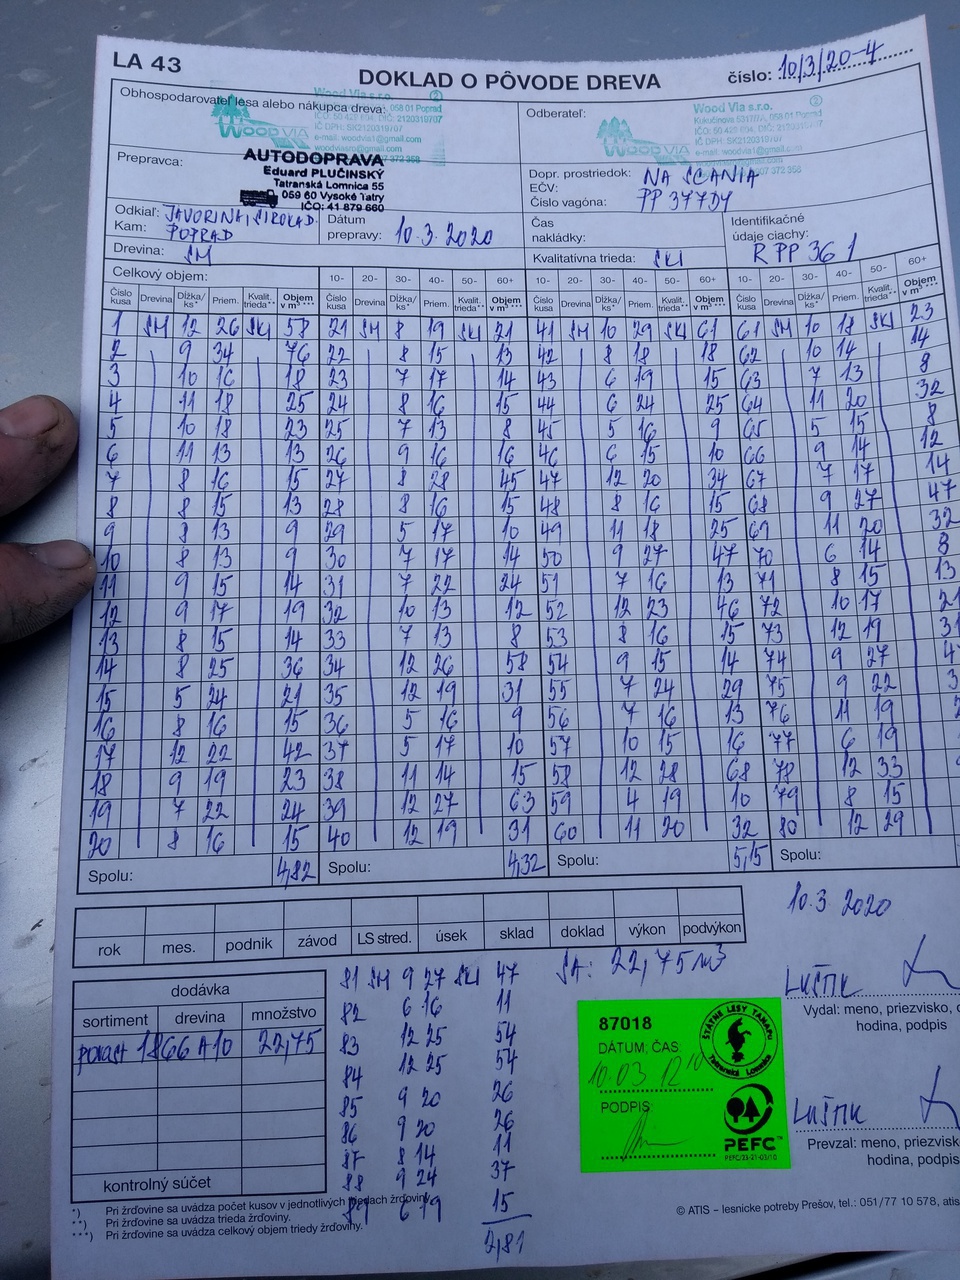 LA 43
DOKLAD O PÔVODE DREVA
číslo: 10/3/20-4
Obhospodarovateľ lesa alebo nákupca dreva:
Wood Via s.r.o.
WOOD VIA
Odberateľ:
Wood Via s.r.o.
WOOD VIA
Prepravca:
AUTODOPRAVA
Eduard PLUČINSKÝ
Tatranská Lomnica 55
059 60 Vysoké Tatry
IČO: 41 879 660
Dopr. prostriedok: NA SCANIA
EČV:
Číslo vagóna: PP 377DY
Odkiaľ: JAVORINA, ŠIROKÁ
Kam: POPRAD
Dátum prepravy: 10.3.2020
Čas nakládky:
Identifikačné údaje ciachy: R PP 361
Drevina: SM
Kvalitatívna trieda: SKI
Celkový objem: 10- 20- 30- 40- 50- 60+ 10- 20- 30- 40- 50- 60+ 10- 20- 30- 40- 50- 60+
Číslo kusa Drevina Dĺžka/ks* Priem. Kvalit. trieda** Objem v m³ *** Číslo kusa Drevina Dĺžka/ks* Priem. Kvalit. trieda** Objem v m³ *** Číslo kusa Drevina Dĺžka/ks* Priem. Kvalit. trieda** Objem v m³ *** Číslo kusa Drevina Dĺžka/ks* Priem. Kvalit. trieda** Objem v m³ ***
1 SM 12 26 SKI 58 21 SM 8 19 SKI 21 41 SM 10 29 SKI 61 61 SM 10 18 SKI 23
2 9 34 76 22 8 15 13 42 8 18 18 62 10 14 14
3 10 16 18 23 7 17 14 43 6 19 15 63 7 13 8
4 11 18 25 24 8 16 15 44 6 24 25 64 11 20 32
5 10 18 23 25 7 13 8 45 5 16 9 65 5 15 8
6 11 13 13 26 9 16 16 46 6 15 10 66 9 14 12
7 8 16 15 27 8 28 45 47 12 20 34 67 7 17 14
8 8 15 13 28 8 16 15 48 8 16 15 68 9 27 47
9 8 13 9 29 5 17 10 49 11 18 25 69 11 20 32
10 8 13 9 30 7 17 14 50 9 27 47 70 6 14 8
11 9 15 14 31 7 22 24 51 7 16 13 71 8 15 13
12 9 17 19 32 10 13 12 52 12 23 46 72 10 17 21
13 8 15 14 33 7 13 8 53 8 16 15 73 12 19 31
14 8 25 36 34 12 26 58 54 9 15 14 74 9 27
15 5 24 21 35 12 19 31 55 7 24 29 75 9 22
16 8 16 15 36 5 16 9 56 7 16 13 76 11 19
17 12 22 42 37 5 17 10 57 10 15 16 77 6 19
18 9 19 23 38 11 14 15 58 12 28 68 78 12 33
19 7 22 24 39 12 27 63 59 4 19 10 79 8 15
20 8 16 15 40 12 19 31 60 11 20 32 80 12 29
Spolu: 4,82 Spolu: 4,32 Spolu: 5,15 Spolu:
rok mes. podnik závod LS stred. úsek sklad doklad výkon podvýkon
10.3 2020
dodávka
sortiment drevina množstvo
porast 1866 A10 22,75
kontrolný súčet
81 SM 9 27 SKI 47
82 6 16 11
83 12 25 54
84 12 25 54
85 9 20 26
86 9 20 26
87 8 14 11
88 9 24 37
89 6 19 15
2,81
SA: 22,75 m3
87018
DÁTUM, ČAS:
10.03 12 10
PODPIS:
ŠTÁTNE LESY TANAPU
Tatranská Lomnica
PEFC
PEFC/23-21-03/10
LUŠTIK
Vydal: meno, priezvisko,
hodina, podpis
LUŠTIK
Prevzal: meno, priezvisk
hodina, podpis
*) Pri žrďovine sa uvádza počet kusov v jednotlivých triedach žrďoviny.
**) Pri žrďovine sa uvádza trieda žrďoviny.
***) Pri žrďovine sa uvádza celkový objem triedy žrďoviny.
© ATIS – lesnícke potreby Prešov, tel.: 051/77 10 578, atis